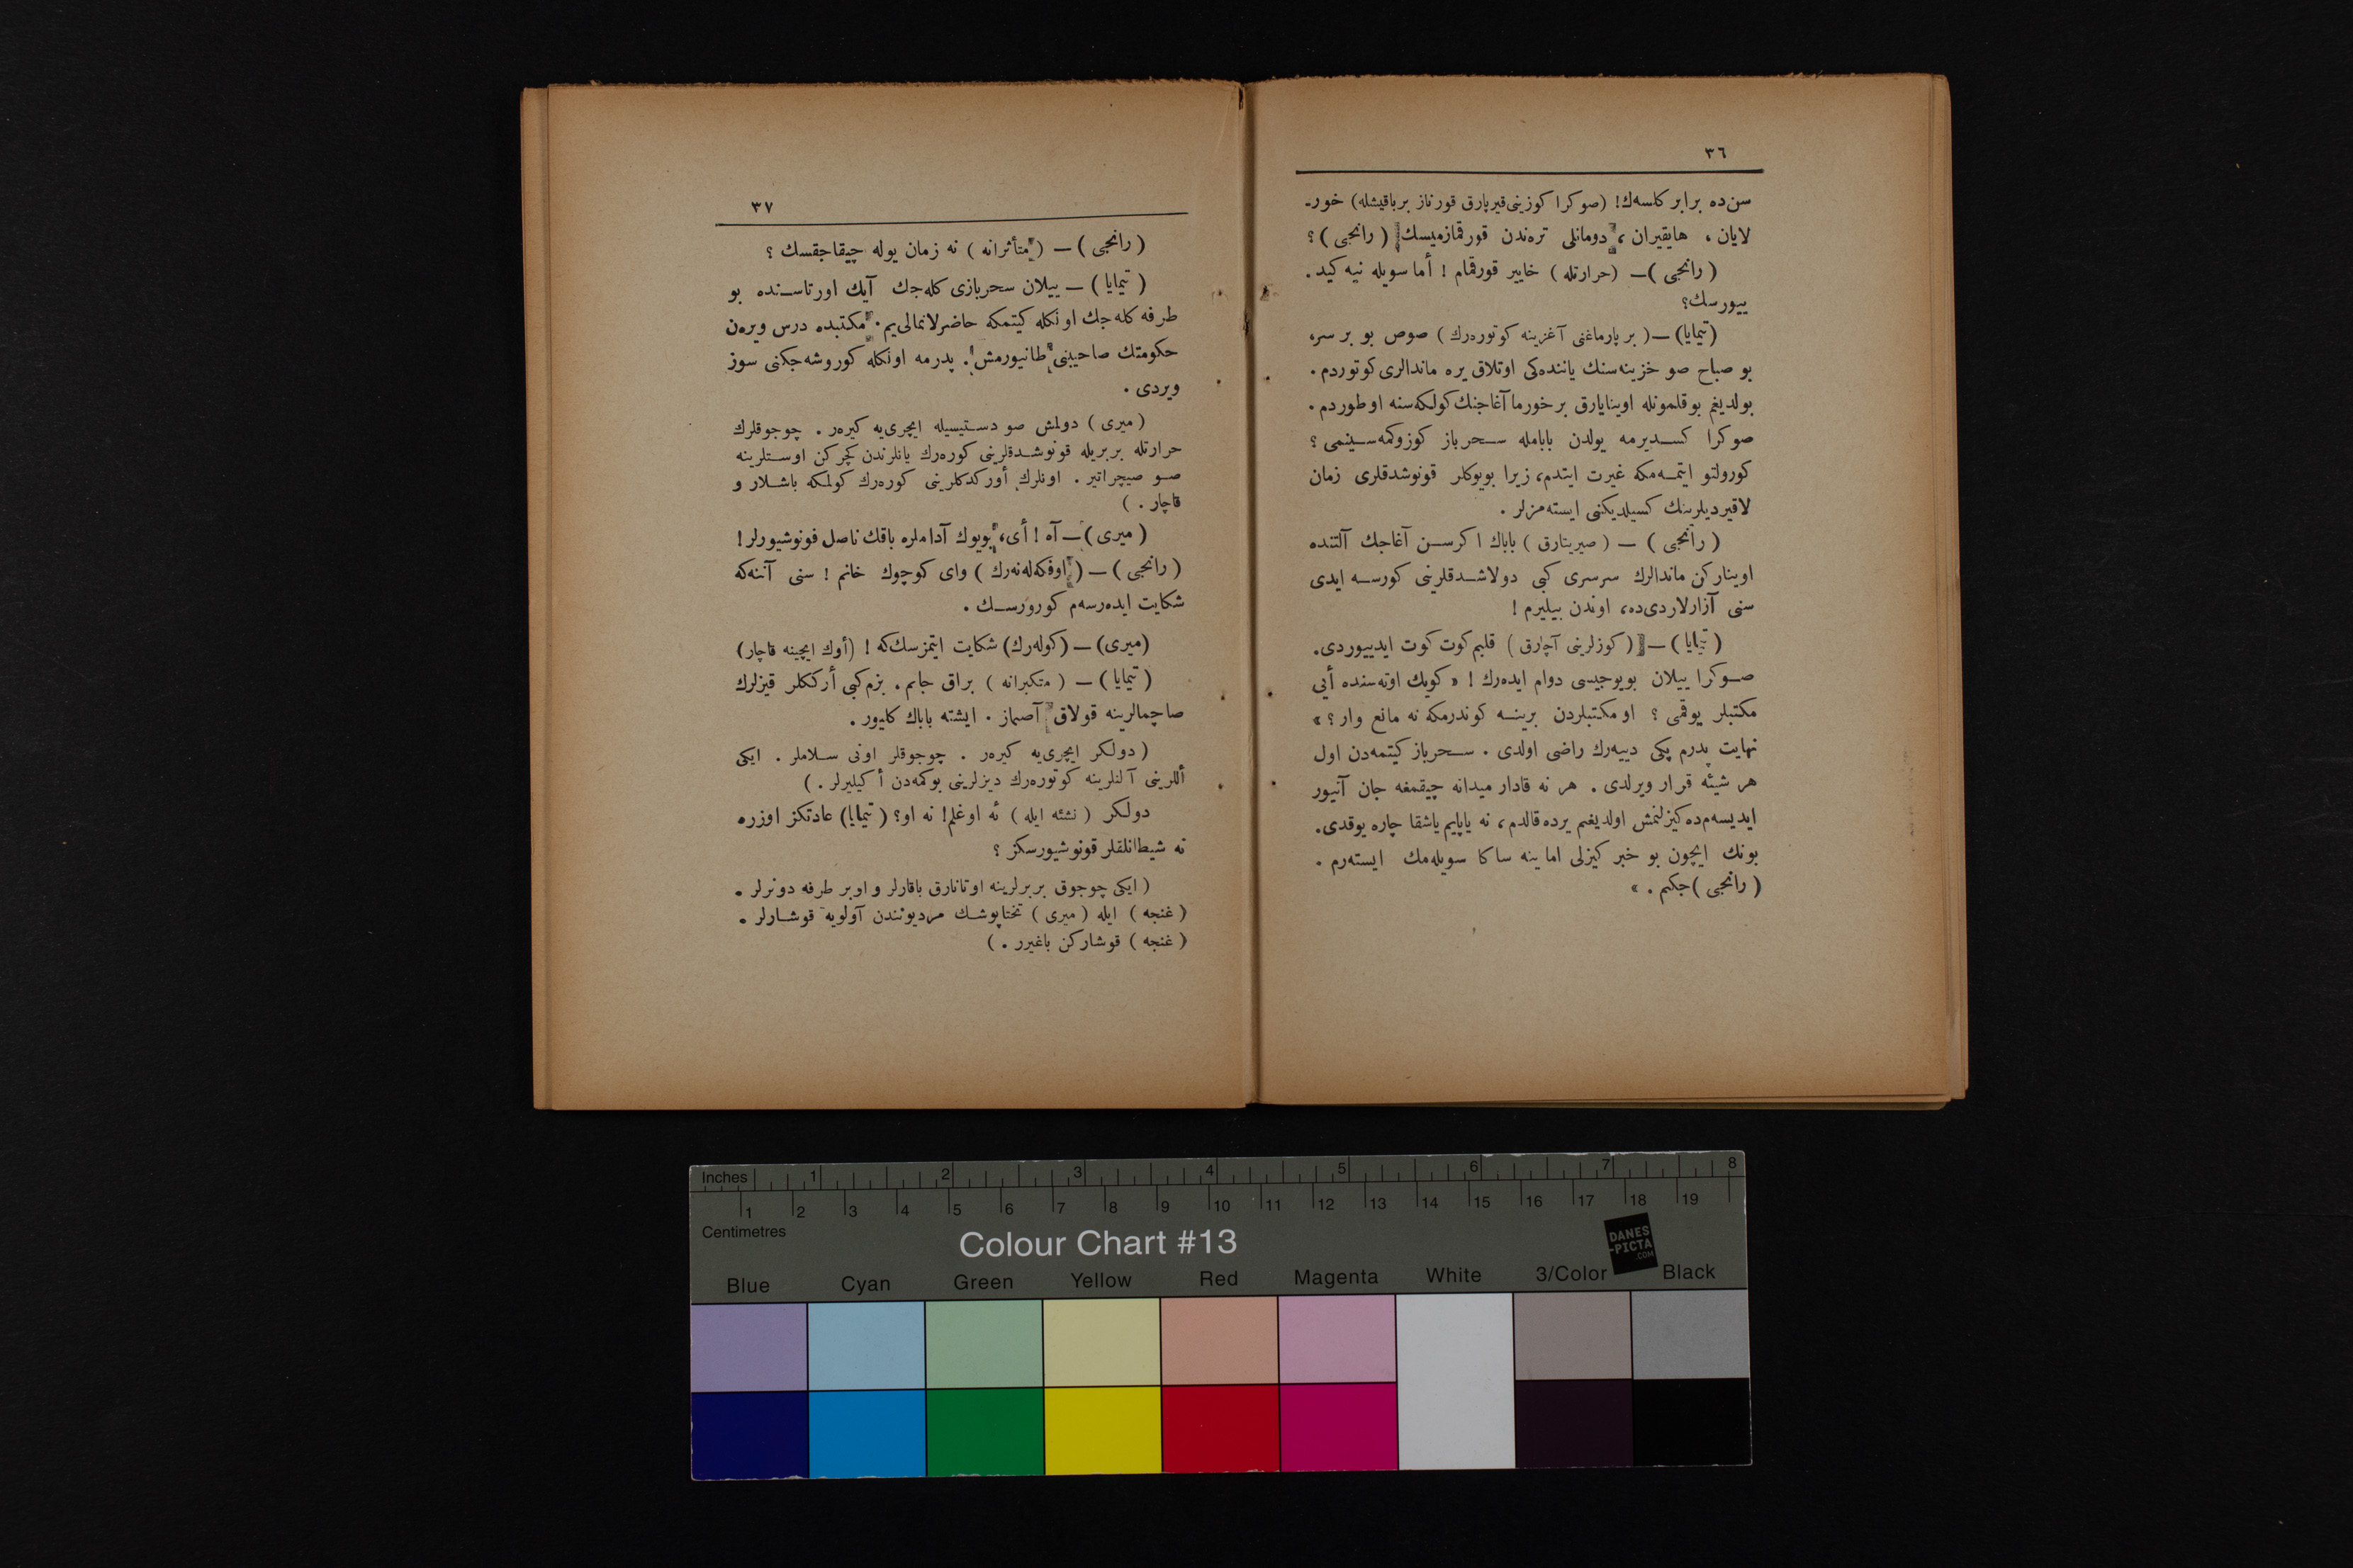 ٣٦
سن‌ده برابر کلسه‌ك! (صوکرا کوزینی قیرپارق قورناز بر باقیشله) خور-
لایان ، هایقیران ، دومانلی تره‌ندن قورقمازمیسك (رانجی) ؟
(رانجی) — (حرارتله) خاییر قورقمام ! أما سویله نیه کید-
ییورسك؟
(تیمایا) — (بر پارماغنی آغزینه کوتوره‌رك) صوص بو بر سر،
بو صباح صو خزینه‌سنك یاننده‌کی اوتلاق یره ماندالری کوتوردم .
بولدیغم بوقلمونله اوینایارق بر خورما آغاجنك کولکه‌سنه اوطوردم .
صوکرا کسدیرمه یولدن بابامله سحرباز کوزوکمه‌سینمی ؟
کورولتو ایتمه‌مکه غیرت ایتدم، زیرا بویوکلر قونوشدقلری زمان
لاقیردیلرینك کسیلدیکنی ایسته‌مزلر .
(رانجی) — (صیریتارق) باباك اکر سن آغاجك آلتنده
اوینارکن ماندالرك سرسری کبی دولاشدقلرینی کورسه ایدی
سنی آزارلاردی‌ده، اوندن بیلیرم !
(تیمایا) — (کوزلرینی آچارق) قلبم کوت کوت ایدییوردی.
صوکرا ییلان بویوجیسی دوام ایده‌رك ! « کویك اوته‌سنده أیی
مکتبلر یوقمی ؟ او مکتبلردن برینه کوندرمکه نه مانع وار ؟ »
نهایت پدرم پکی دییه‌رك راضی اولدی . سحرباز کیتمه‌دن اول
هر شیئه قرار ویرلدی . هر نه قادار میدانه چیقمغه جان آتیور
ایدیسه‌م‌ده کیزلنمش اولدیغم یرده قالدم، نه یاپایم باشقا چاره یوقدی.
بونك ایچون بو خبر کیزلی اما ینه ساکا سویله‌مك ایسته‌رم .
(رانجی) جکم . »
٣٧
(رانجی) — (متأثرانه) نه زمان یوله چیقاجقسك ؟
(تیمایا) — ییلان سحربازی کله‌جك آیك اورتاسنده بو
طرفه کله‌جك اونکله کیتمکه حاضرلانمالی‌یم . مکتبده درس ویره‌ن
حکومتك صاحبنی طانیورمش . پدرمه اونکله کوروشه‌جکنی سوز
ویردی .
(میری) دولمش صو دستیسیله ایچری‌یه کیره‌ر . چوجوقلرك
حرارتله بربریله قونوشدقلرینی کوره‌رك یانلرندن کچرکن اوستلرینه
صو صیچراتیر . اونلرك أورکدکلرینی کوره‌رك کولمکه باشلار و
قاچار . )
(میری) — آه ! أی، بویوك آداملره باقك ناصل قونوشیورلر !
(رانجی) — (اوفکه‌له‌نه‌رك) وای کوچوك خانم ! سنی آننه‌که
شکایت ایده‌رسه‌م کورورسك .
(میری) — (کوله‌رك) شکایت ایتمزسك‌که ! (أوك ایچینه قاچار)
(تیمایا) — (متکبرانه) براق جانم . بزم کبی أرککلر قیزلرك
صاچمالرینه قولاق آصماز . ایشته باباك کلیور .
(دولکر ایچری‌یه کیره‌ر . چوجوقلر اونی سلاملر . ایکی
أللرینی آلنلرینه کوتوره‌رك دیزلرینی بوکمه‌دن أکیلیرلر . )
دولکر (نشئه ایله) ئه اوغلم! نه او؟ (تیمایا) عادتکز اوزره
نه شیطانلقلر قونوشیورسکز ؟
(ایکی چوجوق بربرلرینه اوتانارق باقارلر و اوبر طرفه دونرلر .
(غنجه) ایله (میری) تختاپوشك مردیونندن آولویه قوشارلر .
(غنجه) قوشارکن باغیرر . )
Inches 1 2 3 4 5 6 7 8
1 2 3 4 5 6 7 8 9 10 11 12 13 14 15 16 17 18 19
Centimetres
Colour Chart #13
DANES
-PICTA
.COM
Blue Cyan Green Yellow Red Magenta White 3/Color Black